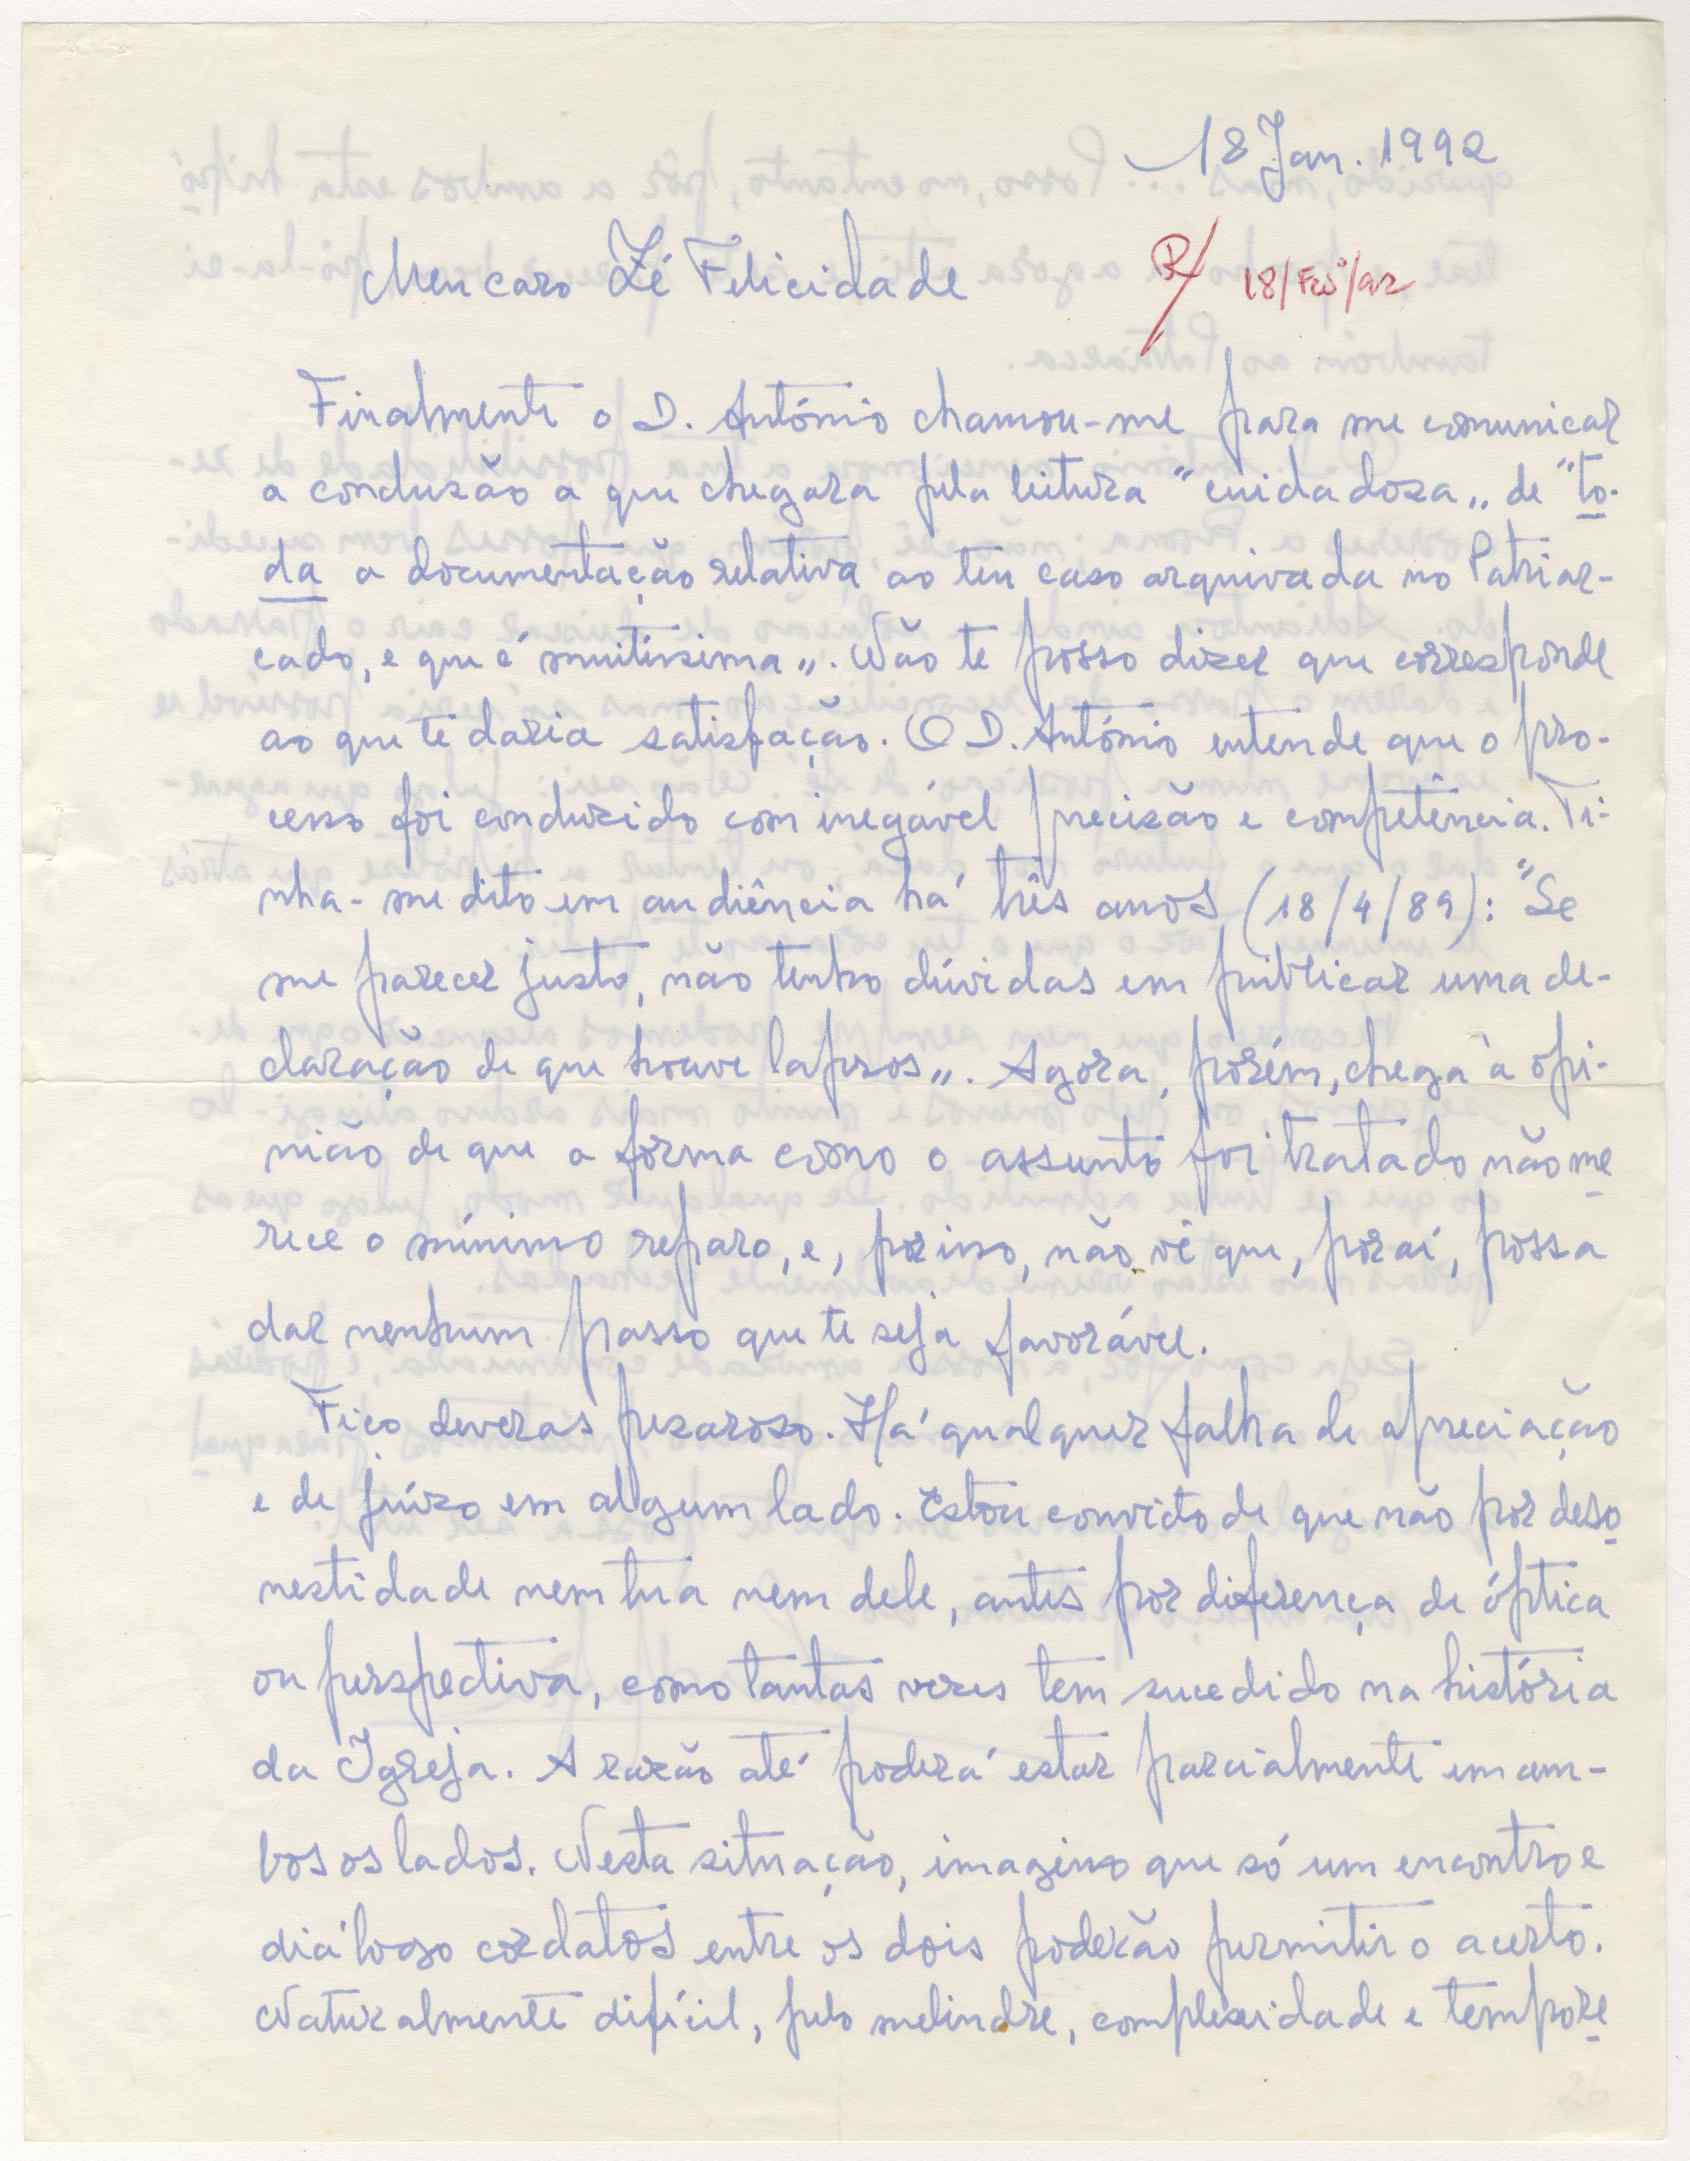 18 Jan. 1992
Meu caro Zé Felicidade
R/ 18/Fev/92
Finalmente o D. António chamou-me para me comunicar
a conclusão a que chegara pela leitura "cuidadosa„ de "to-
da a documentação relativa ao teu caso arquivada no Patriar-
cado, e que é muitíssima„. Não te posso dizer que corresponde
ao que te daria satisfação. O D. António entende que o pro-
cesso foi conduzido com inegável precisão e competência. Ti-
nha-me dito em audiência há três anos (18/4/89): "Se
me parecer justo, não tenho dúvidas em publicar uma de-
claração de que houve lapsos„. Agora, porém, chega à opi-
nião de que a forma como o assunto foi tratado não me
rece o mínimo reparo, e, por isso, não vê que, por aí, possa
dar nenhum passo que te seja favorável.
Fico deveras pesaroso. Há qualquer falha de apreciação
e de juízo em algum lado. Estou convicto de que não por deso
nestidade nem tua nem dele, antes por diferença de óptica
ou perspectiva, como tantas vezes tem sucedido na história
da Igreja. A razão até poderá estar parcialmente em am-
bos os lados. Nesta situação, imagino que só um encontro e
diálogo cordatos entre os dois poderão permitir o acerto.
Naturalmente difícil, pelo melindre, complexidade e tempo re